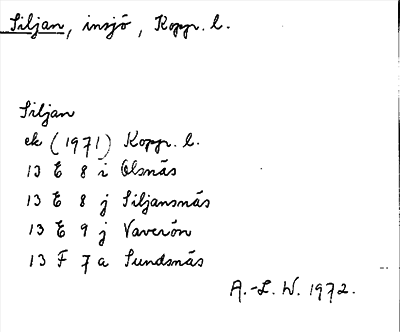 Siljan, insjö, Kopp. l.
Siljan
ek (1971) Kopp. l.
13 E 8 i Olsnäs
13 E 8 j Siljansnäs
13 E 9 j Vaverön
13 F 7 a Sundsnäs
A.-L. W. 1972.